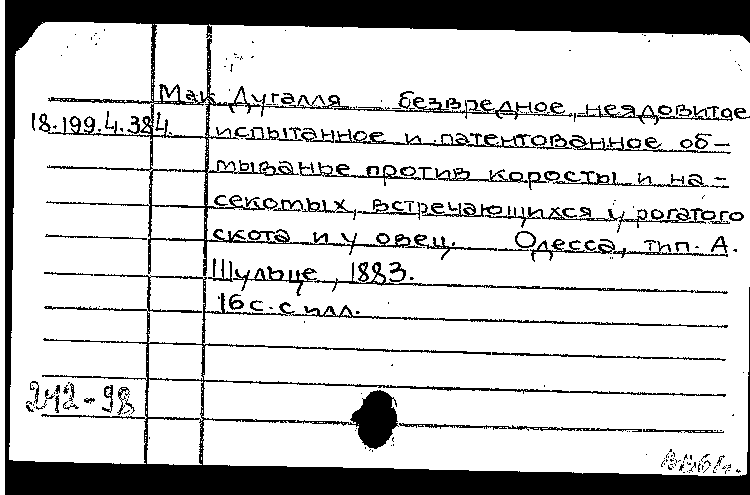 Мак Дугалля безвредное, неядовитое
18.199.4.384. испытанное и патентованное об-
мыванье против коросты и на-
секомых, встречающихся у рогатого
скота и у овец. Одесса, тип. А.
Шульце, 1883.
16 с. с илл.
242-98